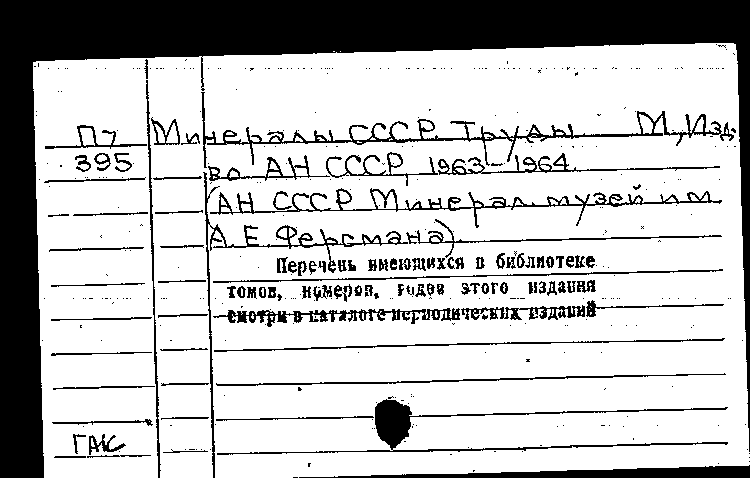 П7 Минералы СССР. Труды М., Изд-
395 во АН СССР, 1963-1964.
(АН СССР Минерал. музей им.
А.Е. Ферсмана).
Перечень имеющихся в библиотеке
томов, номеров, годов этого издания
смотри в каталоге периодических изданий
ГАК